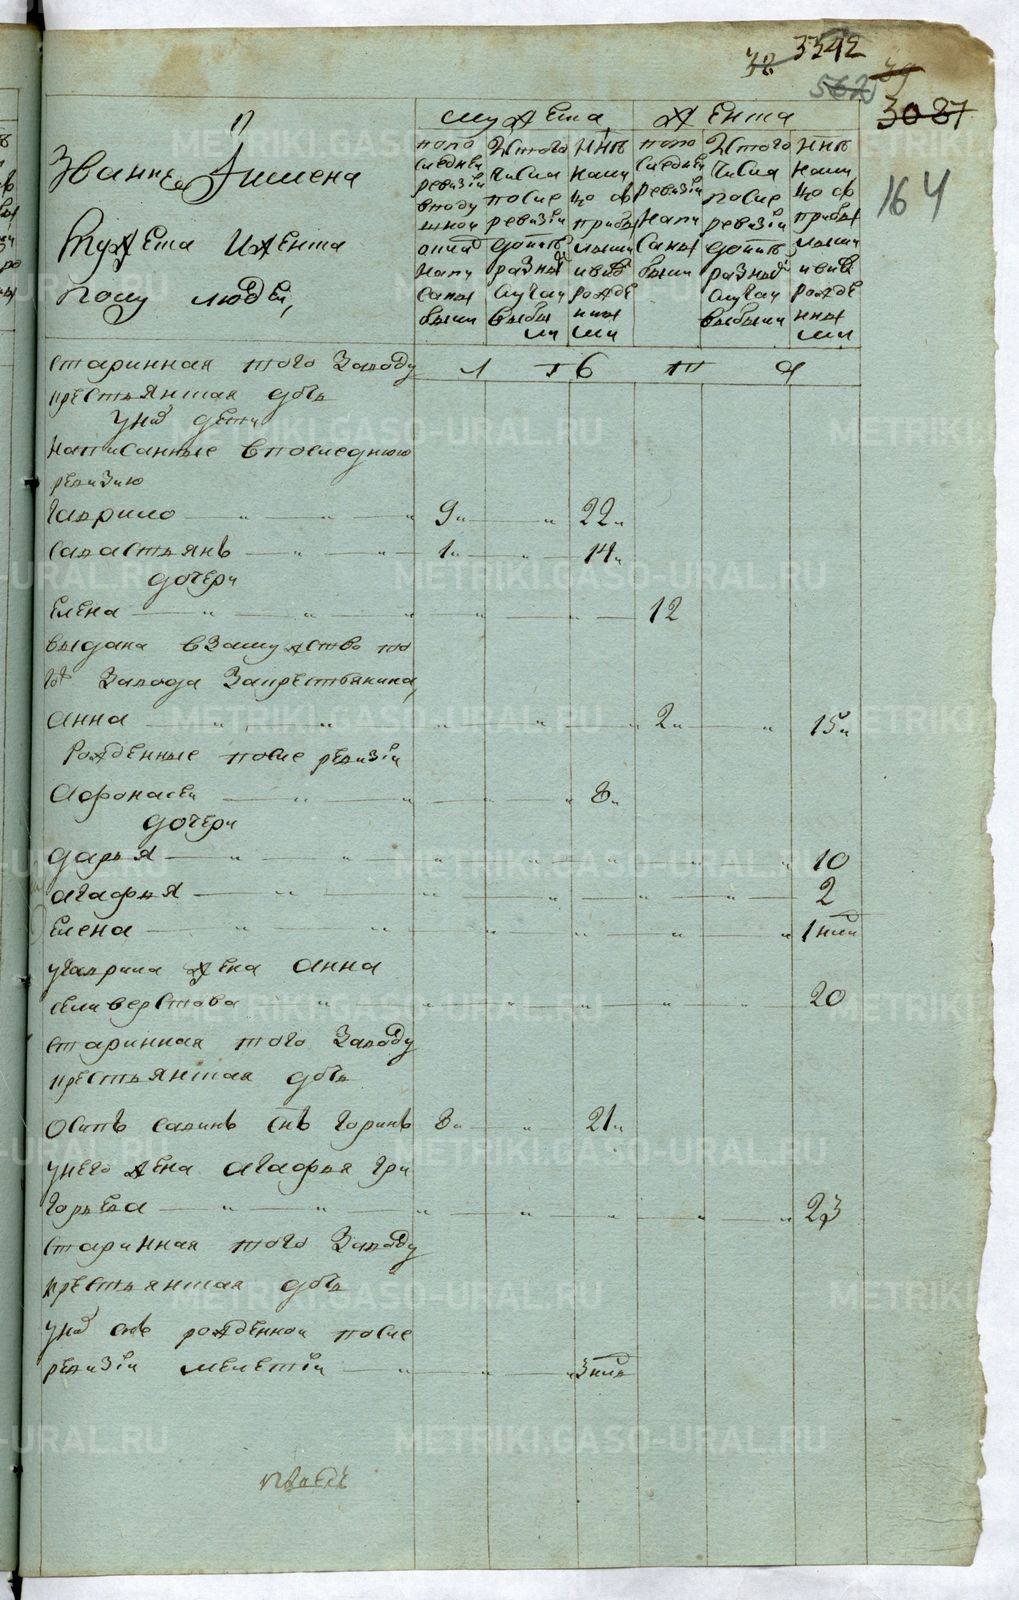 38 3342
562 39
3087
164
Звание Iимена
мужеска иженска
полу людеи,
мужеска
женска
попо следнеи ревизiи вподу шной оклад напи саны были
Изтого числа после ревизiи до ныне разны случаи выбы ли
Ннѣ нали цо съ прибы лыми ивнов рожде нны ми
попо следнеи ревизiи напи саны были
Изтого числа после ревизiи до ныне разны случаи выбыли
Ннѣ нали цо съ прибы лыми ивнов рожде нны ми
старинная того Заводу
крестьянская дочь
унеи дети
написанные впоследнюю
ревизию
Гаврило 9 22
савастьянъ 1 14
дочери
Елена 12
выдана взамужство то
гож Завода Закрестьянина,
анна 2 15
рожденные после ревизiи
Афонасеи 8
дочери
дарья 10
агафья 2
Елена 1 нед
угаврила жена анна
селиверстова 20
старинная того Заводу
крестьянская дочь
Осипъ савинъ снъ горинъ 8 21
унего жена агафья гри
горьева 23
старинная того Заводу
крестьянская дочь
унеи снъ рожденнои после
ревизiи мелетiи 3 нед
METRIKI.GASO-URAL.RU